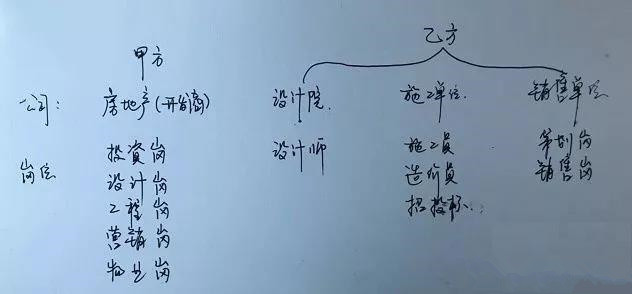 乙方
甲方
公司: 房地产(开发商) 设计院. 施工单位. 销售单位
岗位 投资岗 设计师 施工员 策划岗
设计岗 造价员 销售岗
工程岗 招投标..
营销岗
物业岗